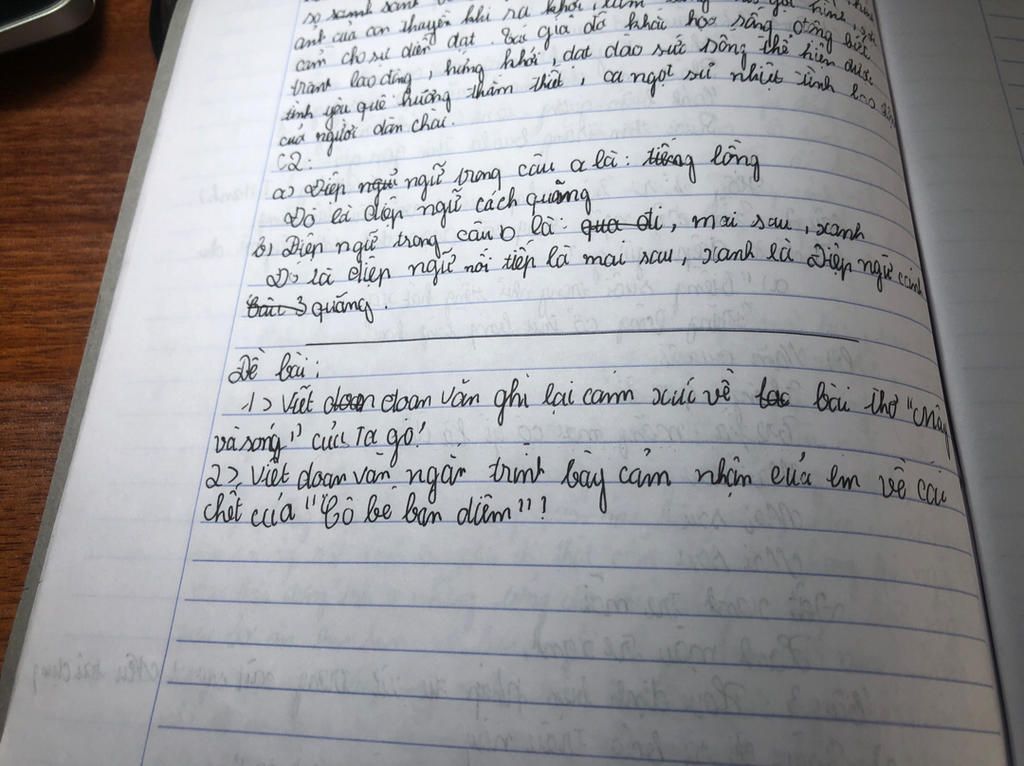 so sánh
anh của con thuyền khi ra khơi, làm
cảm cho sự diễn đạt. Tác giả đã khắc họa sống động bức
tranh lao động, hứng khởi, dạt dào sức sống thể hiện được
tình yêu quê hương thắm thiết, ca ngợi sự nhiệt tình lao động
của người dân chài.
C2:
a) Điệp ngữ trong câu a là: tiếng lồng
Đó là điệp ngữ cách quãng
b) Điệp ngữ trong câu b là: qua đi, mai sau, xanh
Đó là điệp ngữ nối tiếp là mai sau, xanh là Điệp ngữ cách
Bài 3 quãng.
Đề bài:
1) Viết đoạn đoạn văn ghi lại cảm xúc về bài thơ "Mây
và sóng" của Ta go!
2) Viết đoạn văn ngắn trình bày cảm nhận của em về cái
chết của "Cô bé bán diêm"!